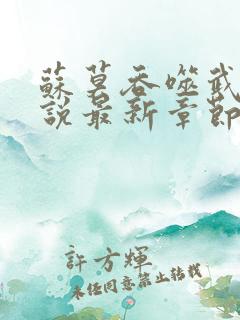 蘇莫吞噬武
說最新章節
許方輝
未經同意禁止轉載